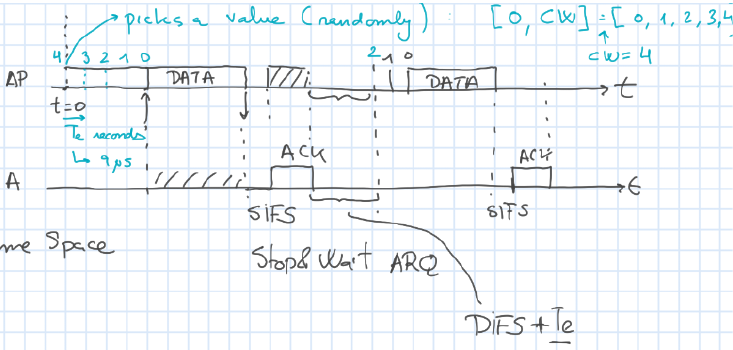 picks a value (randomly) : [0, CW] = [0, 1, 2, 3, 4
CW = 4
4 3 2 1 0
2 1 0
AP DATA DATA t
t=0
Te seconds
↳ 9 μs
ACK ACK
A t
SIFS SIFS
me Space
Stop & Wait ARQ
DIFS + Te